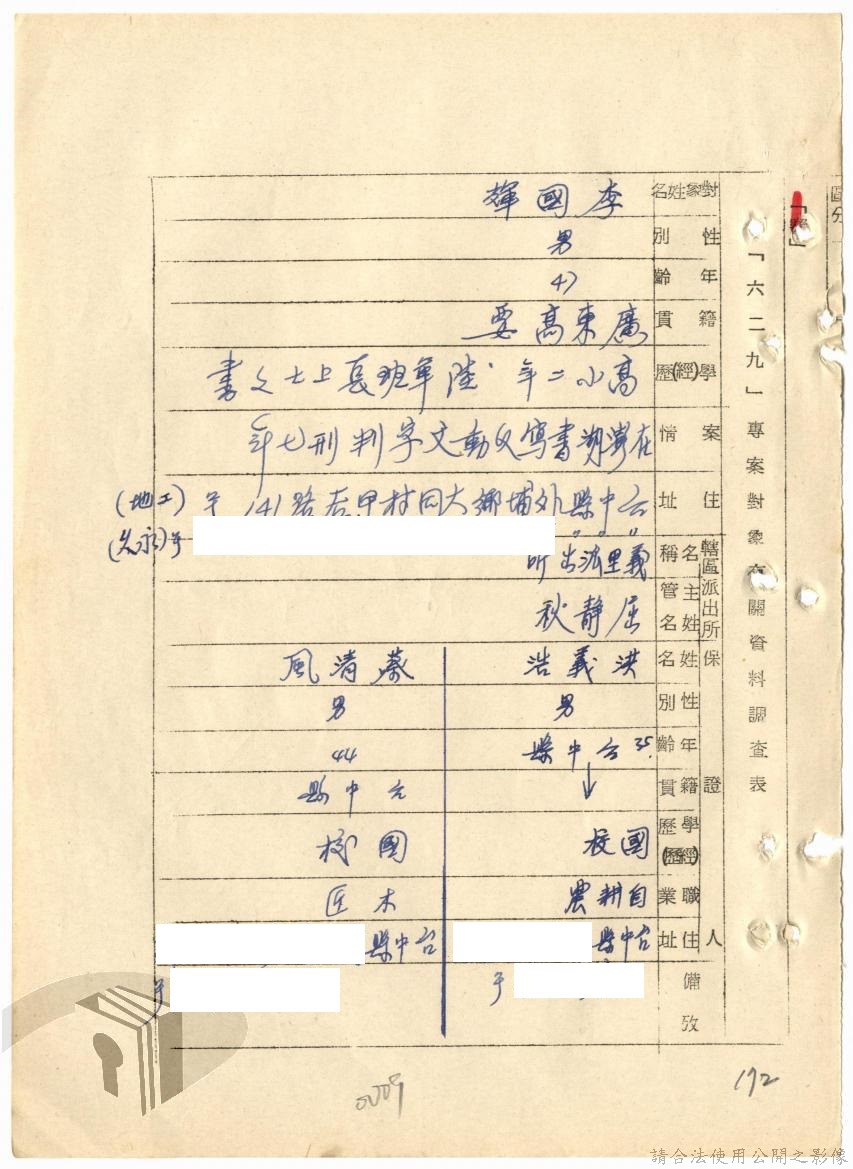 「六二九」專案對象有關資料調查表
區分
對象姓名 李國輝
性別 男
年齡 47
籍貫 廣東高要
學(經)歷 高小二年、陸軍班長上士文書
案情 在澎湖書寫反動文字判刑七年
住址 台中縣外埔鄉大同村甲后路141号 (地工)
轄區派出所
名稱 義里派出所
主管姓名 屈靜秋
保證人
姓名 洪義浩 蔡清風
性別 男 男
年齡 35 台中縣 44
籍貫 ↓ 台中縣
學(經)歷 國校 國校
職業 自耕農 木匠
住址 台中縣 台中縣
備攷
号 号
192
0009
請合法使用公開之影像